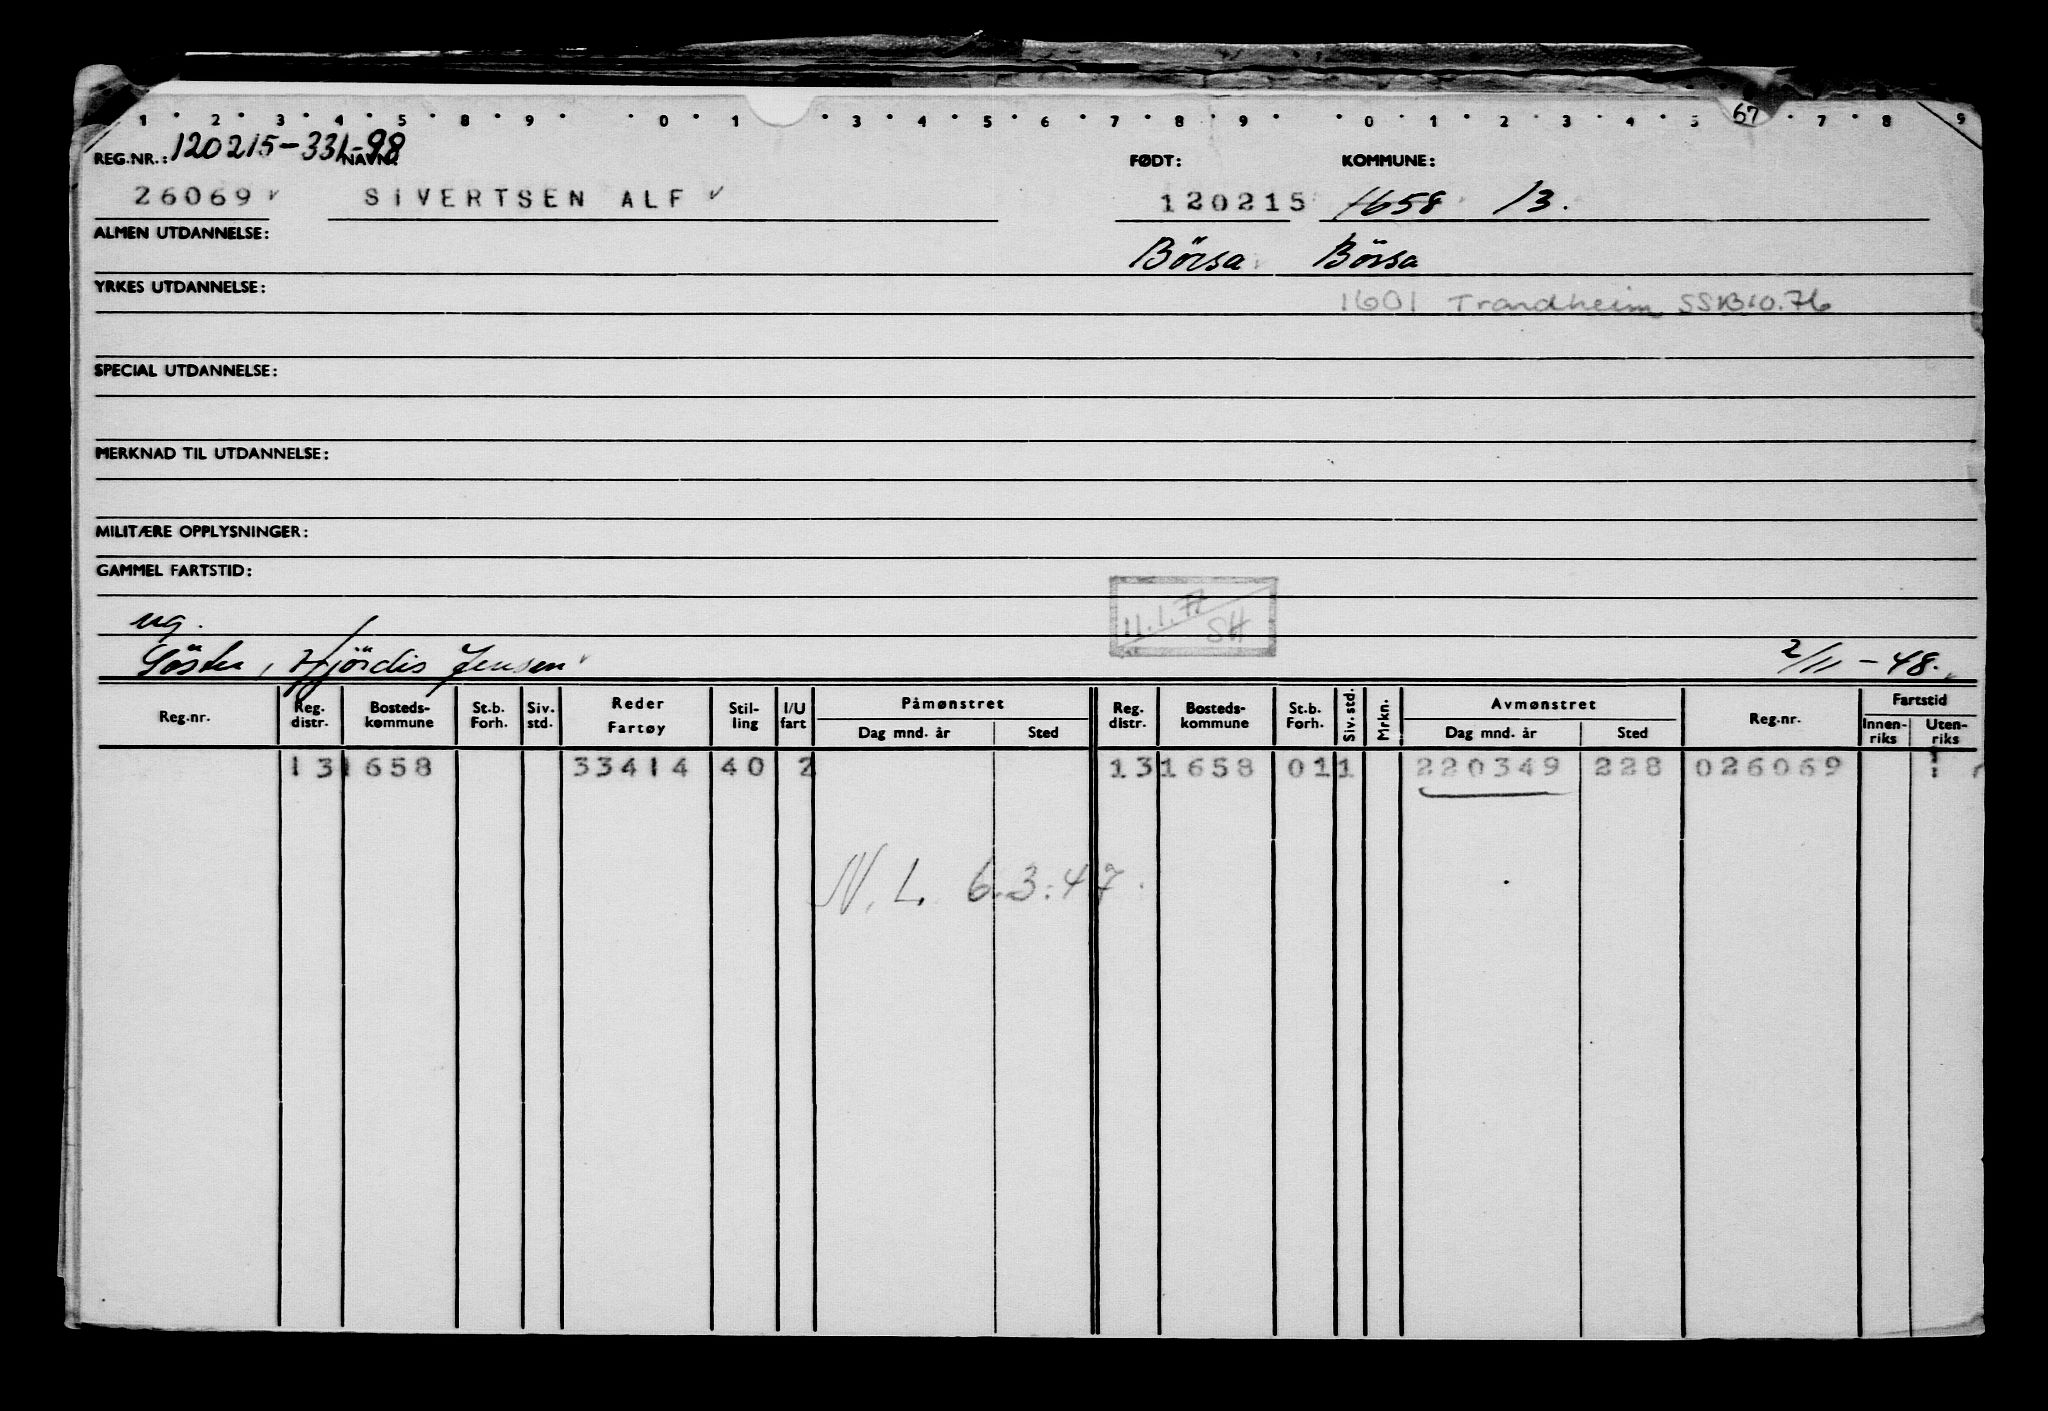 1 2 3 4 5 8 9 0 1 3 4 5 6 7 8 9 0 1 2 3 4 5 67 7 8 9
REG.NR.: 120215-331-98 NAVN: FØDT: KOMMUNE:
26069 SIVERTSEN ALF 120215 1658 13.
ALMEN UTDANNELSE: Börsa Börsa
YRKES UTDANNELSE: 1601 Trondheim SSB10.76
SPECIAL UTDANNELSE:
MERKNAD TIL UTDANNELSE:
MILITÆRE OPPLYSNINGER:
GAMMEL FARTSTID:
ug. 11.1.77 SH
Söster, Hjördis Jensen 2/11-48.
Reg.nr. Reg. distr. Bosteds-kommune St.b. Forh. Siv. std. Reder Fartøy Stil-ling I/U fart Påmønstret Dag mnd. år Sted Reg. distr. Bosteds-kommune St.b. Forh. Siv. std. Mrkn. Avmønstret Dag mnd. år Sted Reg.nr. Fartstid Innen-riks Uten-riks
13 1658 33414 40 2 13 1658 01 1 220349 228 026069
N.L. 6.3.47.